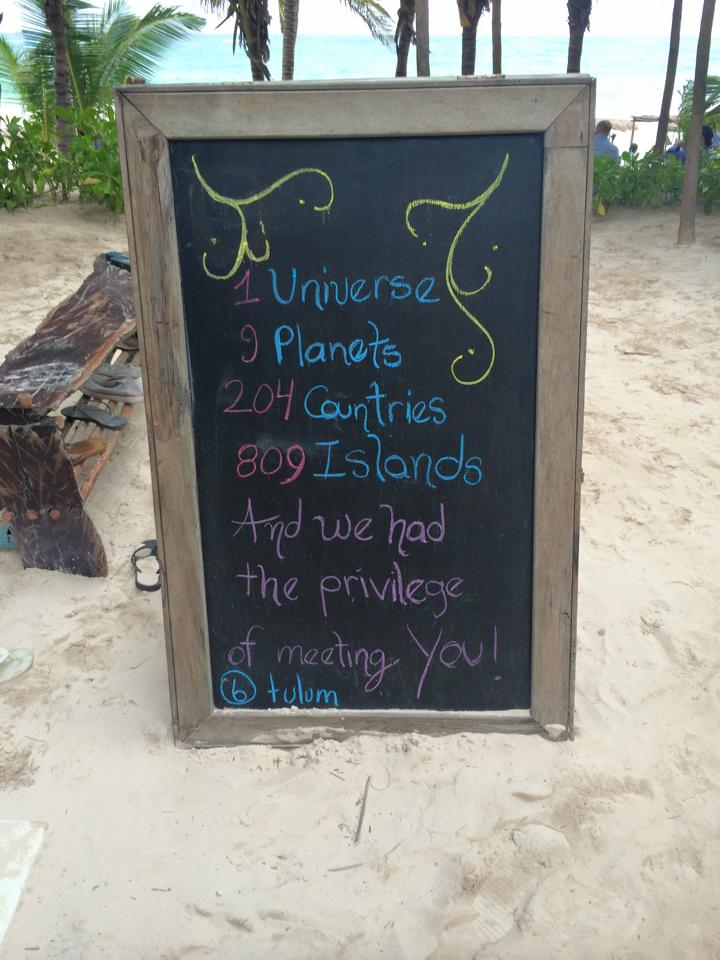 1 Universe
9 Planets
204 Countries
809 Islands
And we had
the privilege
of meeting You!
b tulum